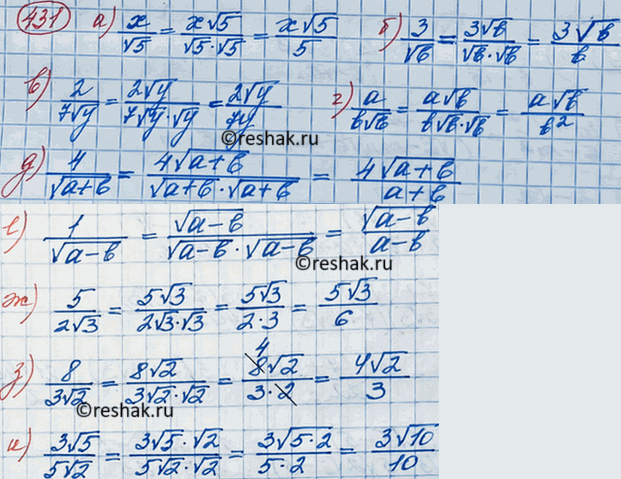 431 а) x/√5 = x√5/√5·√5 = x√5/5 б) 3/√b = 3√b/√b·√b = 3√b/b
в) 2/7√y = 2√y/7√y·√y = 2√y/7y г) a/b√b = a√b/b√b·√b = a√b/b²
©reshak.ru
д) 4/√a+b = 4√a+b/√a+b·√a+b = 4√a+b/a+b
е) 1/√a-b = √a-b/√a-b·√a-b = √a-b/a-b
©reshak.ru
ж) 5/2√3 = 5√3/2√3·√3 = 5√3/2·3 = 5√3/6
з) 8/3√2 = 8√2/3√2·√2 = 4 8√2/3·2 = 4√2/3
©reshak.ru
и) 3√5/5√2 = 3√5·√2/5√2·√2 = 3√5·2/5·2 = 3√10/10